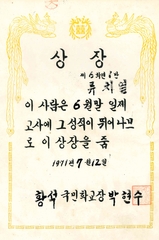 상장
제6학년 6반
류치열
이 사람은 6월말 일제
고사에 그 성적이 뛰어나므
로 이 상장을 줌
1971년 7월 12일
황석 국민학교장 박현수